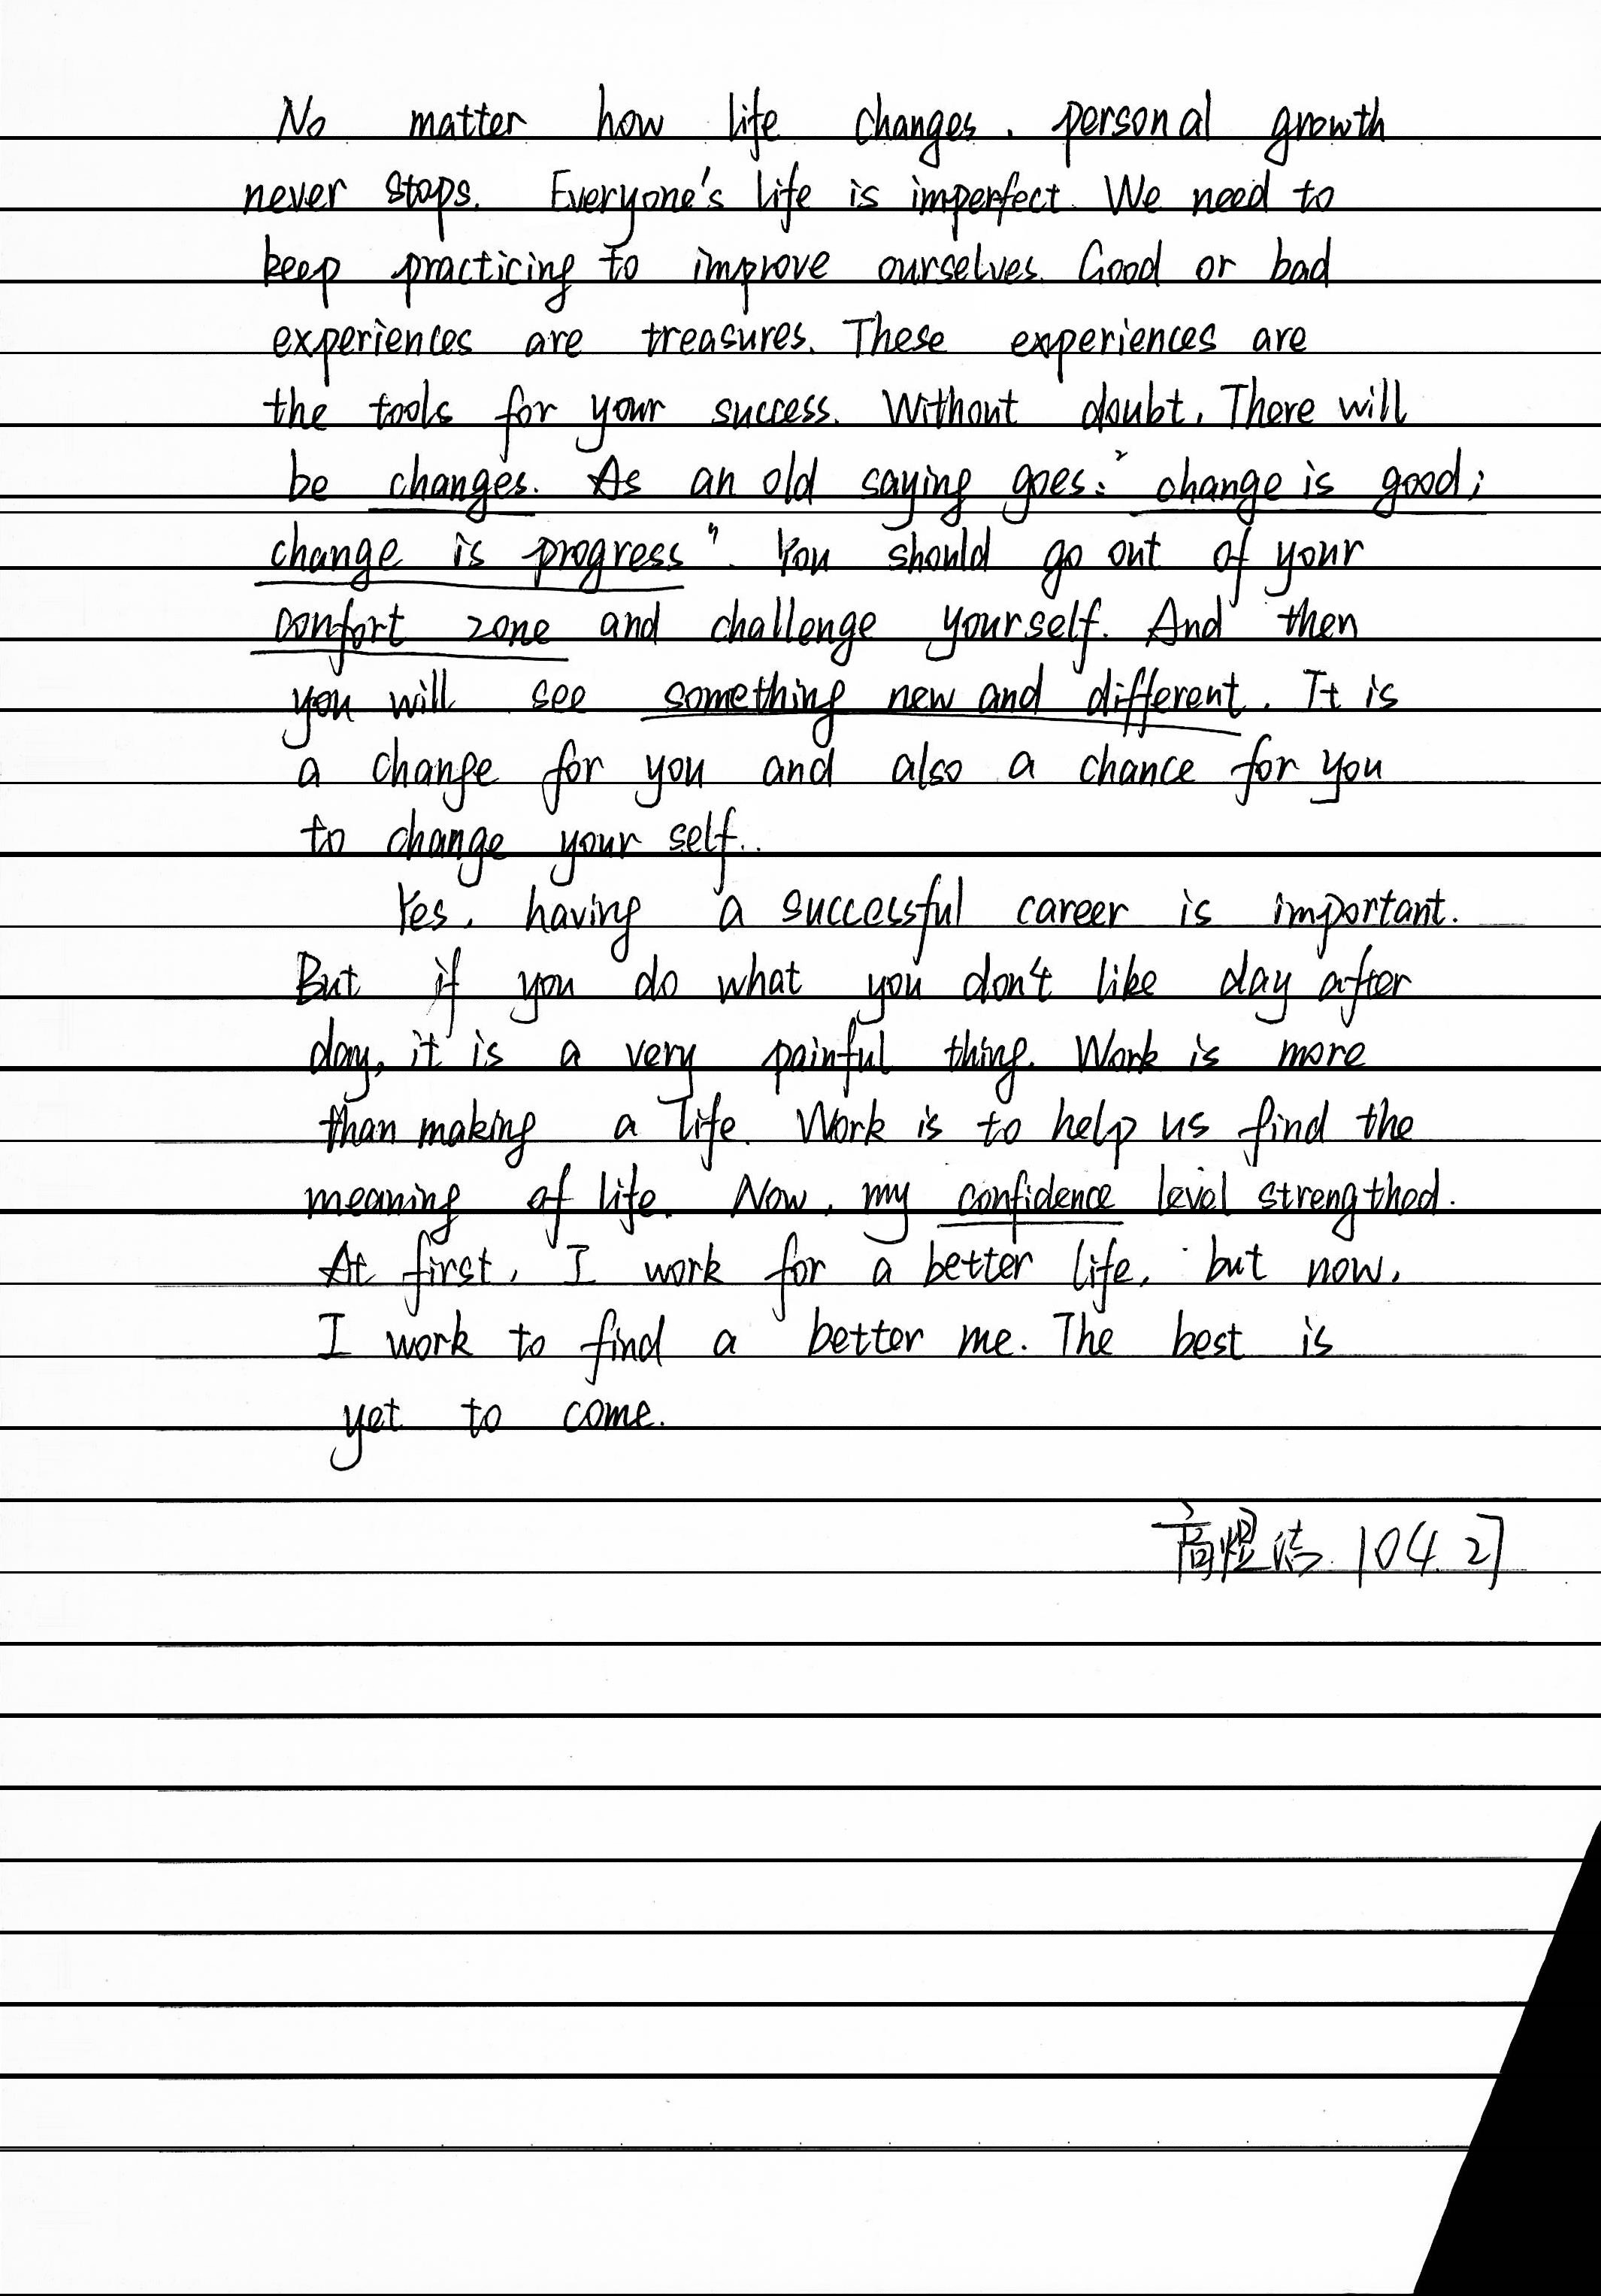 No matter how life changes, personal growth
never stops. Everyone's life is imperfect. We need to
keep practicing to improve ourselves. Good or bad
experiences are treasures. These experiences are
the tools for your success. Without doubt, There will
be changes. As an old saying goes: "change is good;
change is progress". You should go out of your
comfort zone and challenge yourself. And then
you will see something new and different. It is
a change for you and also a chance for you
to change your self..
Yes, having a successful career is important.
But if you do what you don't like day after
day, it is a very painful thing. Work is more
than making a life. Work is to help us find the
meaning of life. Now, my confidence level strengthed.
At first, I work for a better life, but now,
I work to find a better me. The best is
yet to come.
高煜 104.27